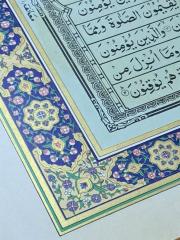 يُؤْمِنُونَ
يُقِيمُونَ الصَّلٰوةَ
وَالَّذِينَ يُؤْمِنُونَ
وَمَٓا اُنْزِلَ مِنْ
هُمْ يُوقِنُونَ